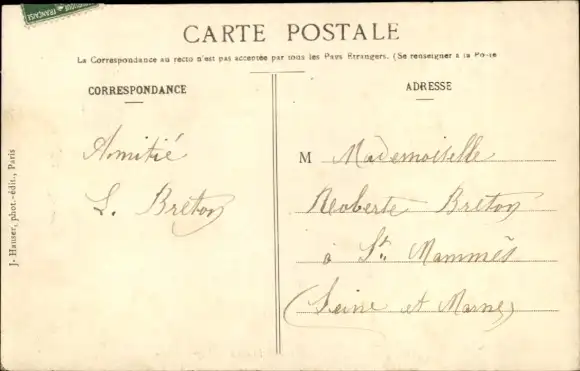 CARTE POSTALE
La Correspondance au recto n'est pas acceptée par tous les Pays Etrangers. (Se renseigner à la Poste
CORRESPONDANCE
Amitié
L. Breton
ADRESSE
M Mademoiselle
Roberte Breton
à St. Mammès
(Seine et Marne)
J. Hauser, phot.-édit., Paris
FRANÇAISE